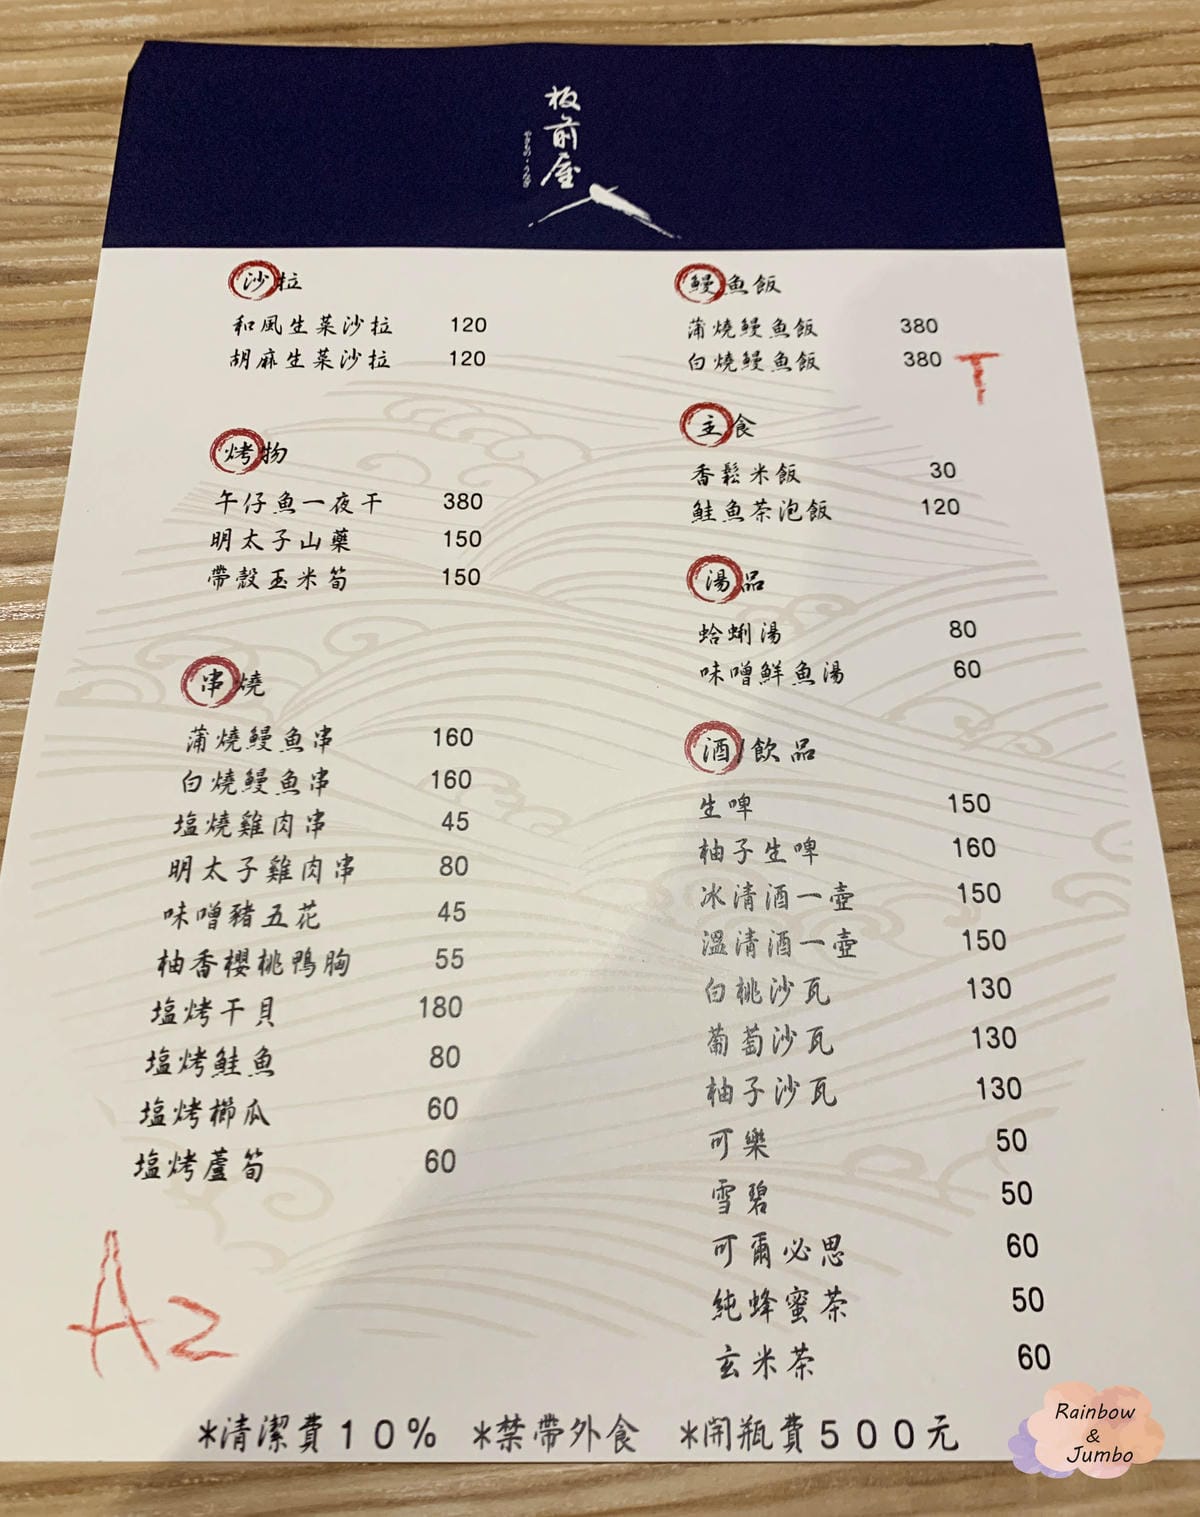 板前屋
やきもの・うなぎ
沙拉
和風生菜沙拉 120
胡麻生菜沙拉 120
烤物
午仔魚一夜干 380
明太子山藥 150
帶殼玉米筍 150
串燒
蒲燒鰻魚串 160
白燒鰻魚串 160
塩燒雞肉串 45
明太子雞肉串 80
味噌豬五花 45
柚香櫻桃鴨胸 55
塩烤干貝 180
塩烤鮭魚 80
塩烤櫛瓜 60
塩烤蘆筍 60
A2
鰻魚飯
蒲燒鰻魚飯 380
白燒鰻魚飯 380 T
主食
香鬆米飯 30
鮭魚茶泡飯 120
湯品
蛤蜊湯 80
味噌鮮魚湯 60
酒/飲品
生啤 150
柚子生啤 160
冰清酒一壺 150
溫清酒一壺 150
白桃沙瓦 130
葡萄沙瓦 130
柚子沙瓦 130
可樂 50
雪碧 50
可爾必思 60
純蜂蜜茶 50
玄米茶 60
*清潔費10% *禁帶外食 *開瓶費500元
Rainbow
&
Jumbo